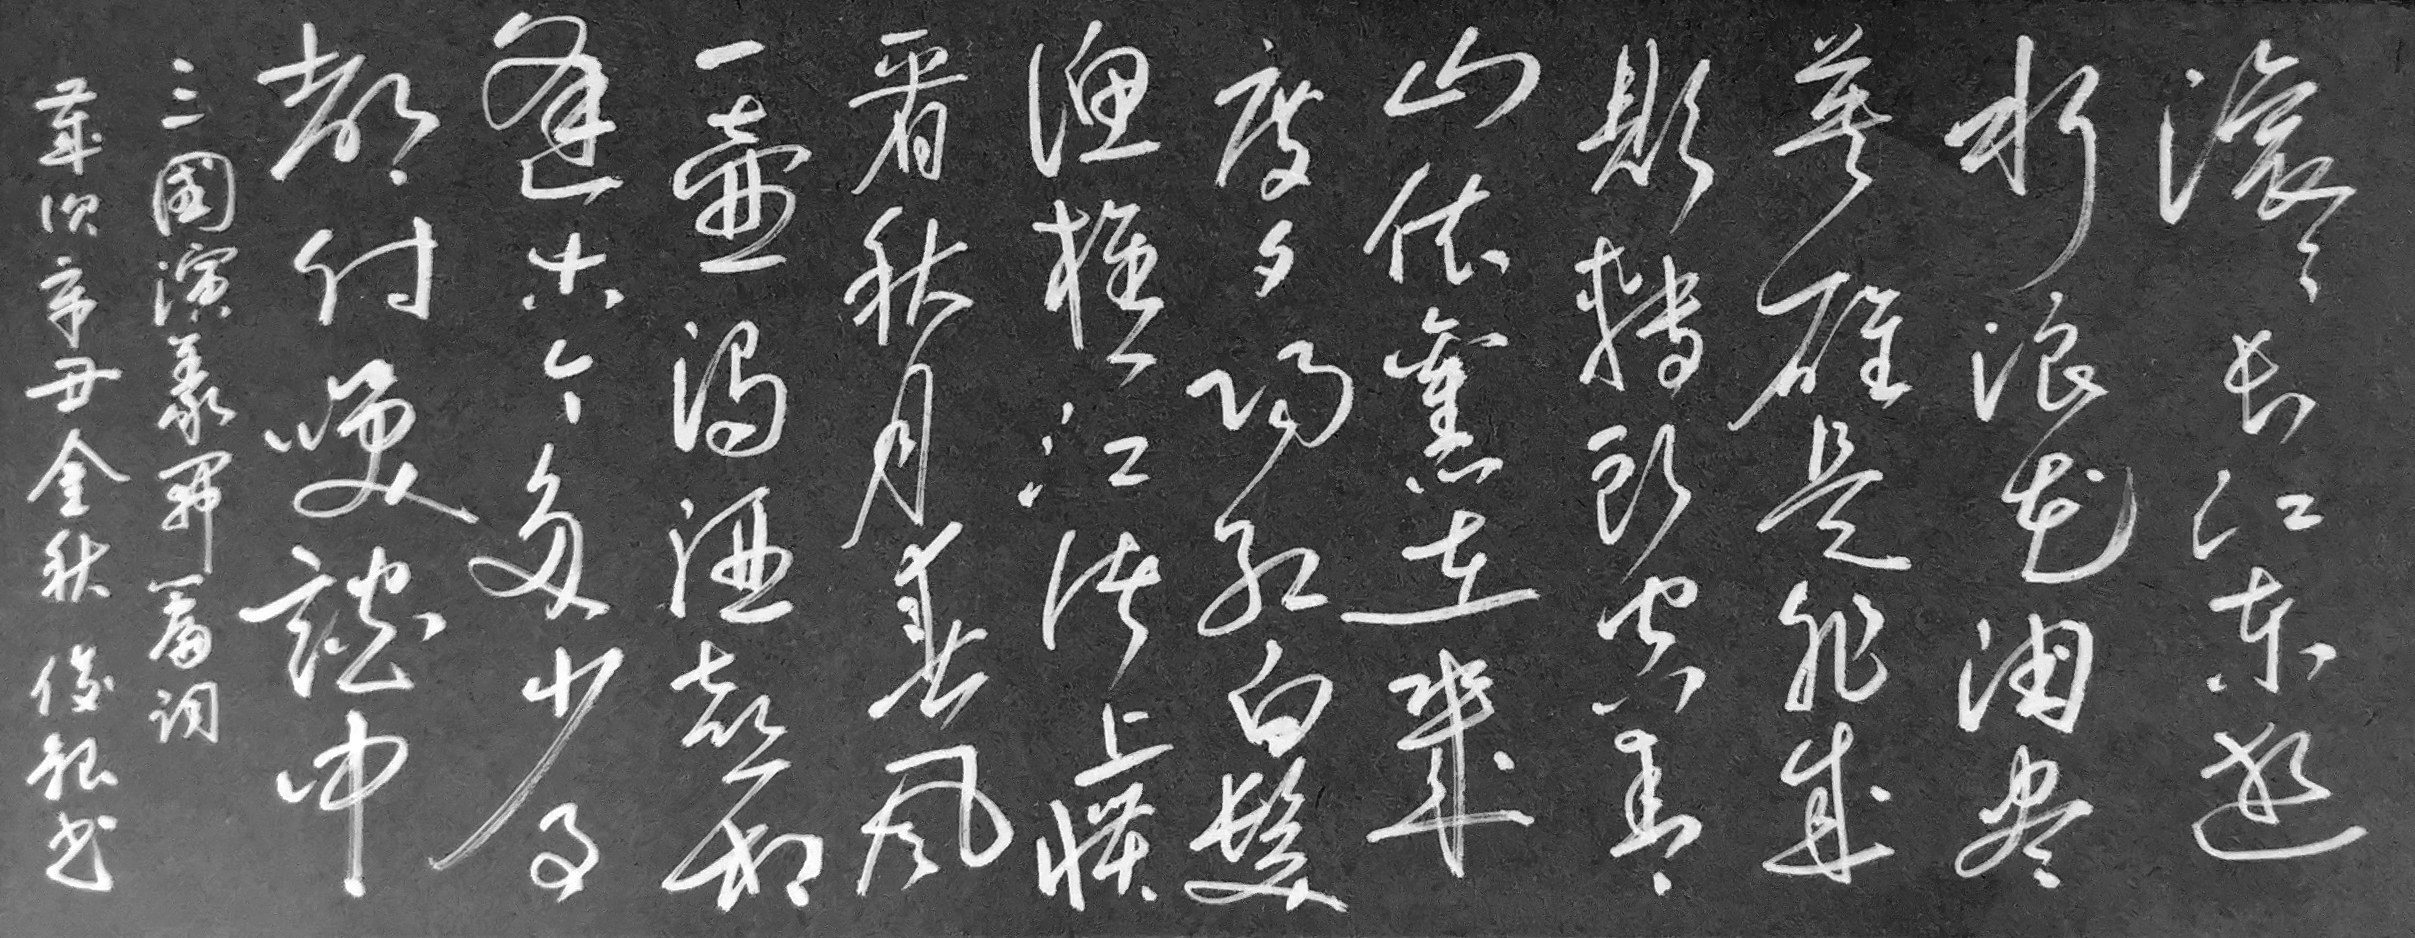 滚滚长江东逝
水浪花淘尽
英雄是非成
败转头空青
山依舊在幾
度夕阳红白髮
渔樵江渚上惯
看秋月春风
一壺濁酒喜相
逢古今多少事
都付笑談中
三國演義开篇词
歲次辛丑金秋 俊书